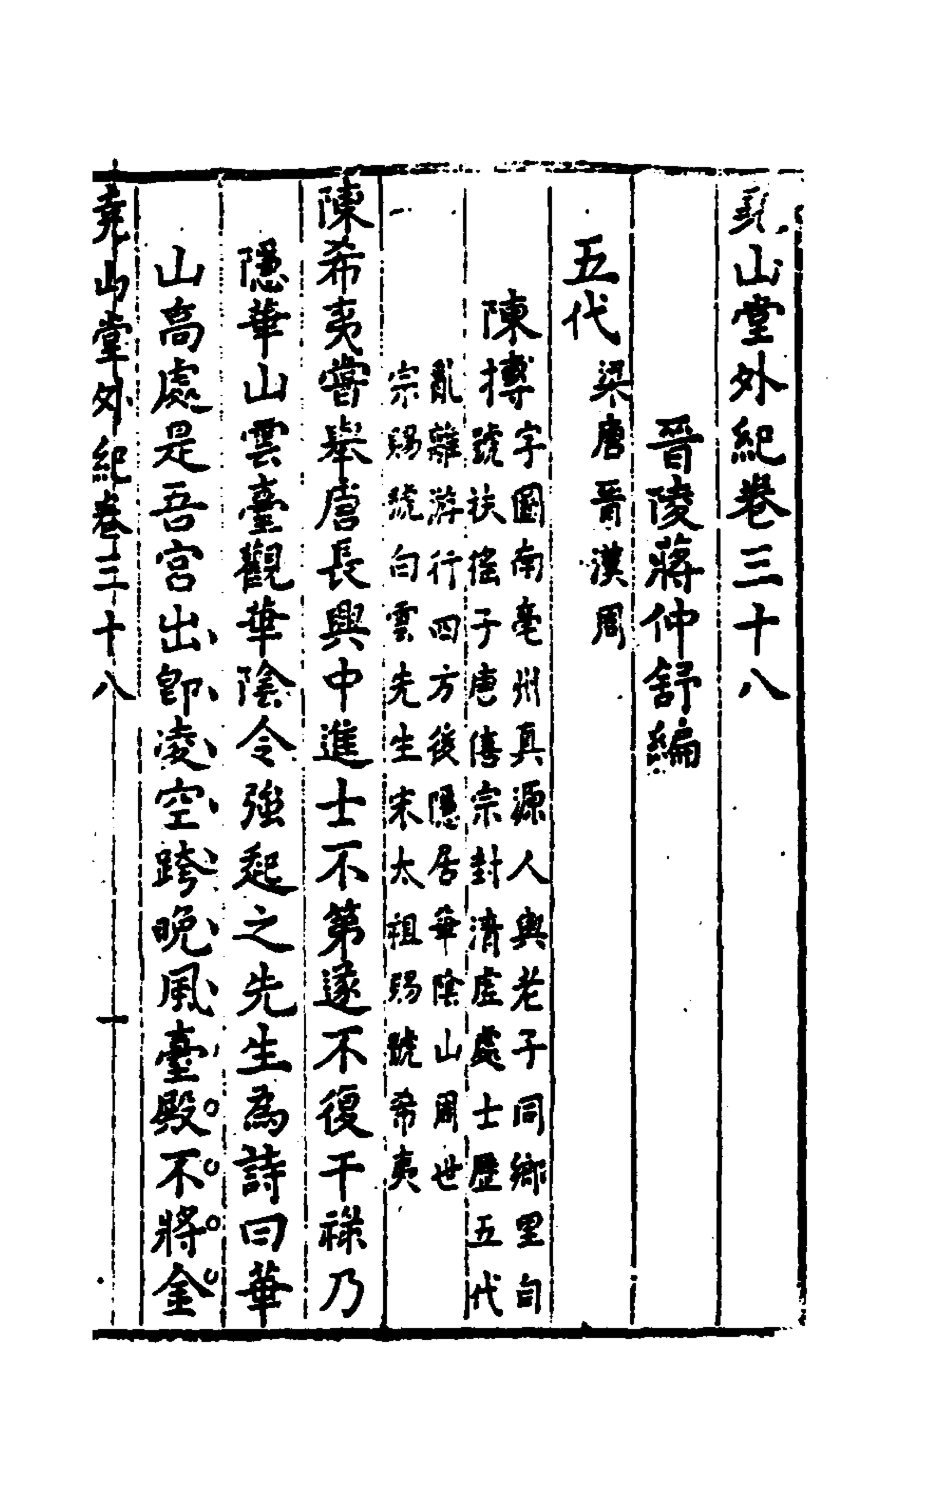 堯山堂外紀卷三十八
晉陵蔣仲舒編
五代梁唐晉漢周
陳摶字圖南亳州真源人與老子同鄉里自
號扶徭子唐僖宗封清虛處士歷五代
亂離游行四方後隱居華陰山周世
宗賜號白雲先生宋太祖賜號希夷
陳希夷嘗舉唐長興中進士不第遂不復干祿乃
隱華山雲臺觀華陰令強起之先生為詩曰華
山高處是吾宮出卽凌空跨晚風臺殿不將金
堯山堂外紀卷三十八 一